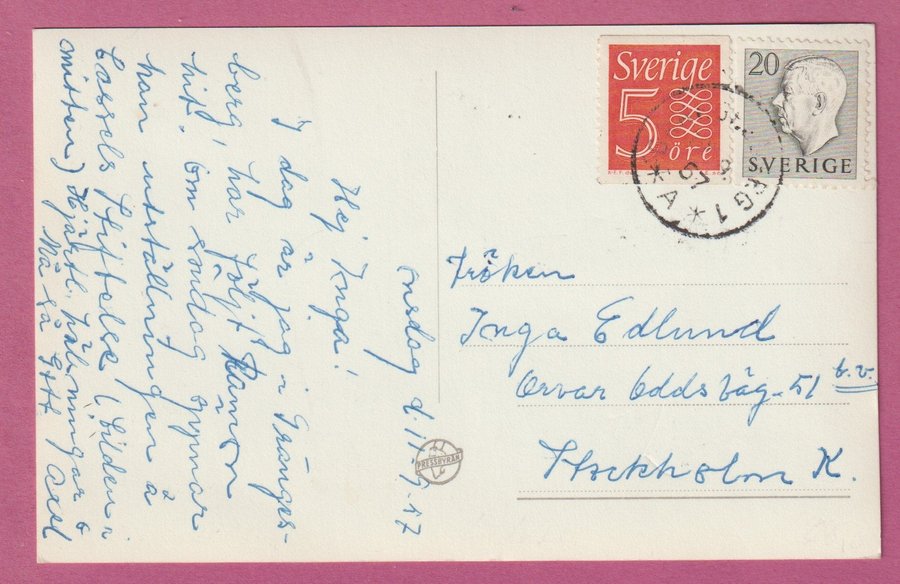 Onsdag d. 11.9.57
Hej Inga!
I dag är jag i Gränges-
berg, har följt Ramon
hit. Om söndag öppnar
han utställningen å
Cassels Stiftelse (bilden i
mitten) Hjärtl. hälsningar &
Må så gott Axel
Sverige
5
öre
20
SVERIGE
RG 1
* A *
Fröken
Inga Edlund
Orvar Odds Väg 51 b.v.
Stockholm K.
PRESSBYRÅN